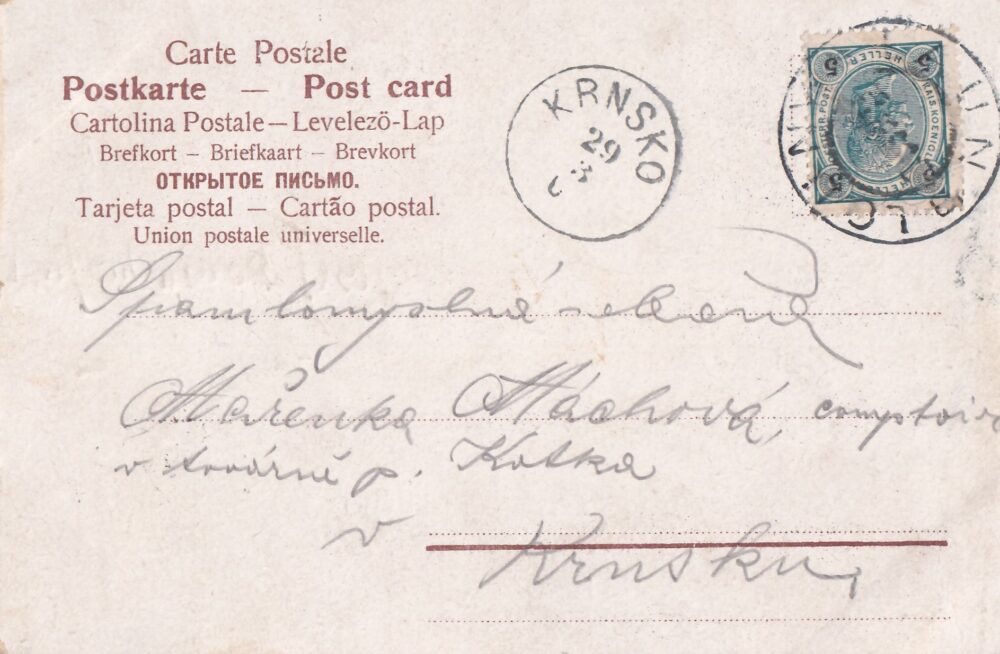 Carte Postale
Postkarte — Post card
Cartolina Postale — Levelezö-Lap
Brefkort — Briefkaart — Brevkort
ОТКРЫТОЕ ПИСЬМО.
Tarjeta postal — Cartão postal.
Union postale universelle.
KRNSKO
29
3
5 HELLER 5
KAIS. KOENIGL.
5
Slečna
Mařenka Máchová, comptoir
v továrně p. Kotka
v Krnsku,